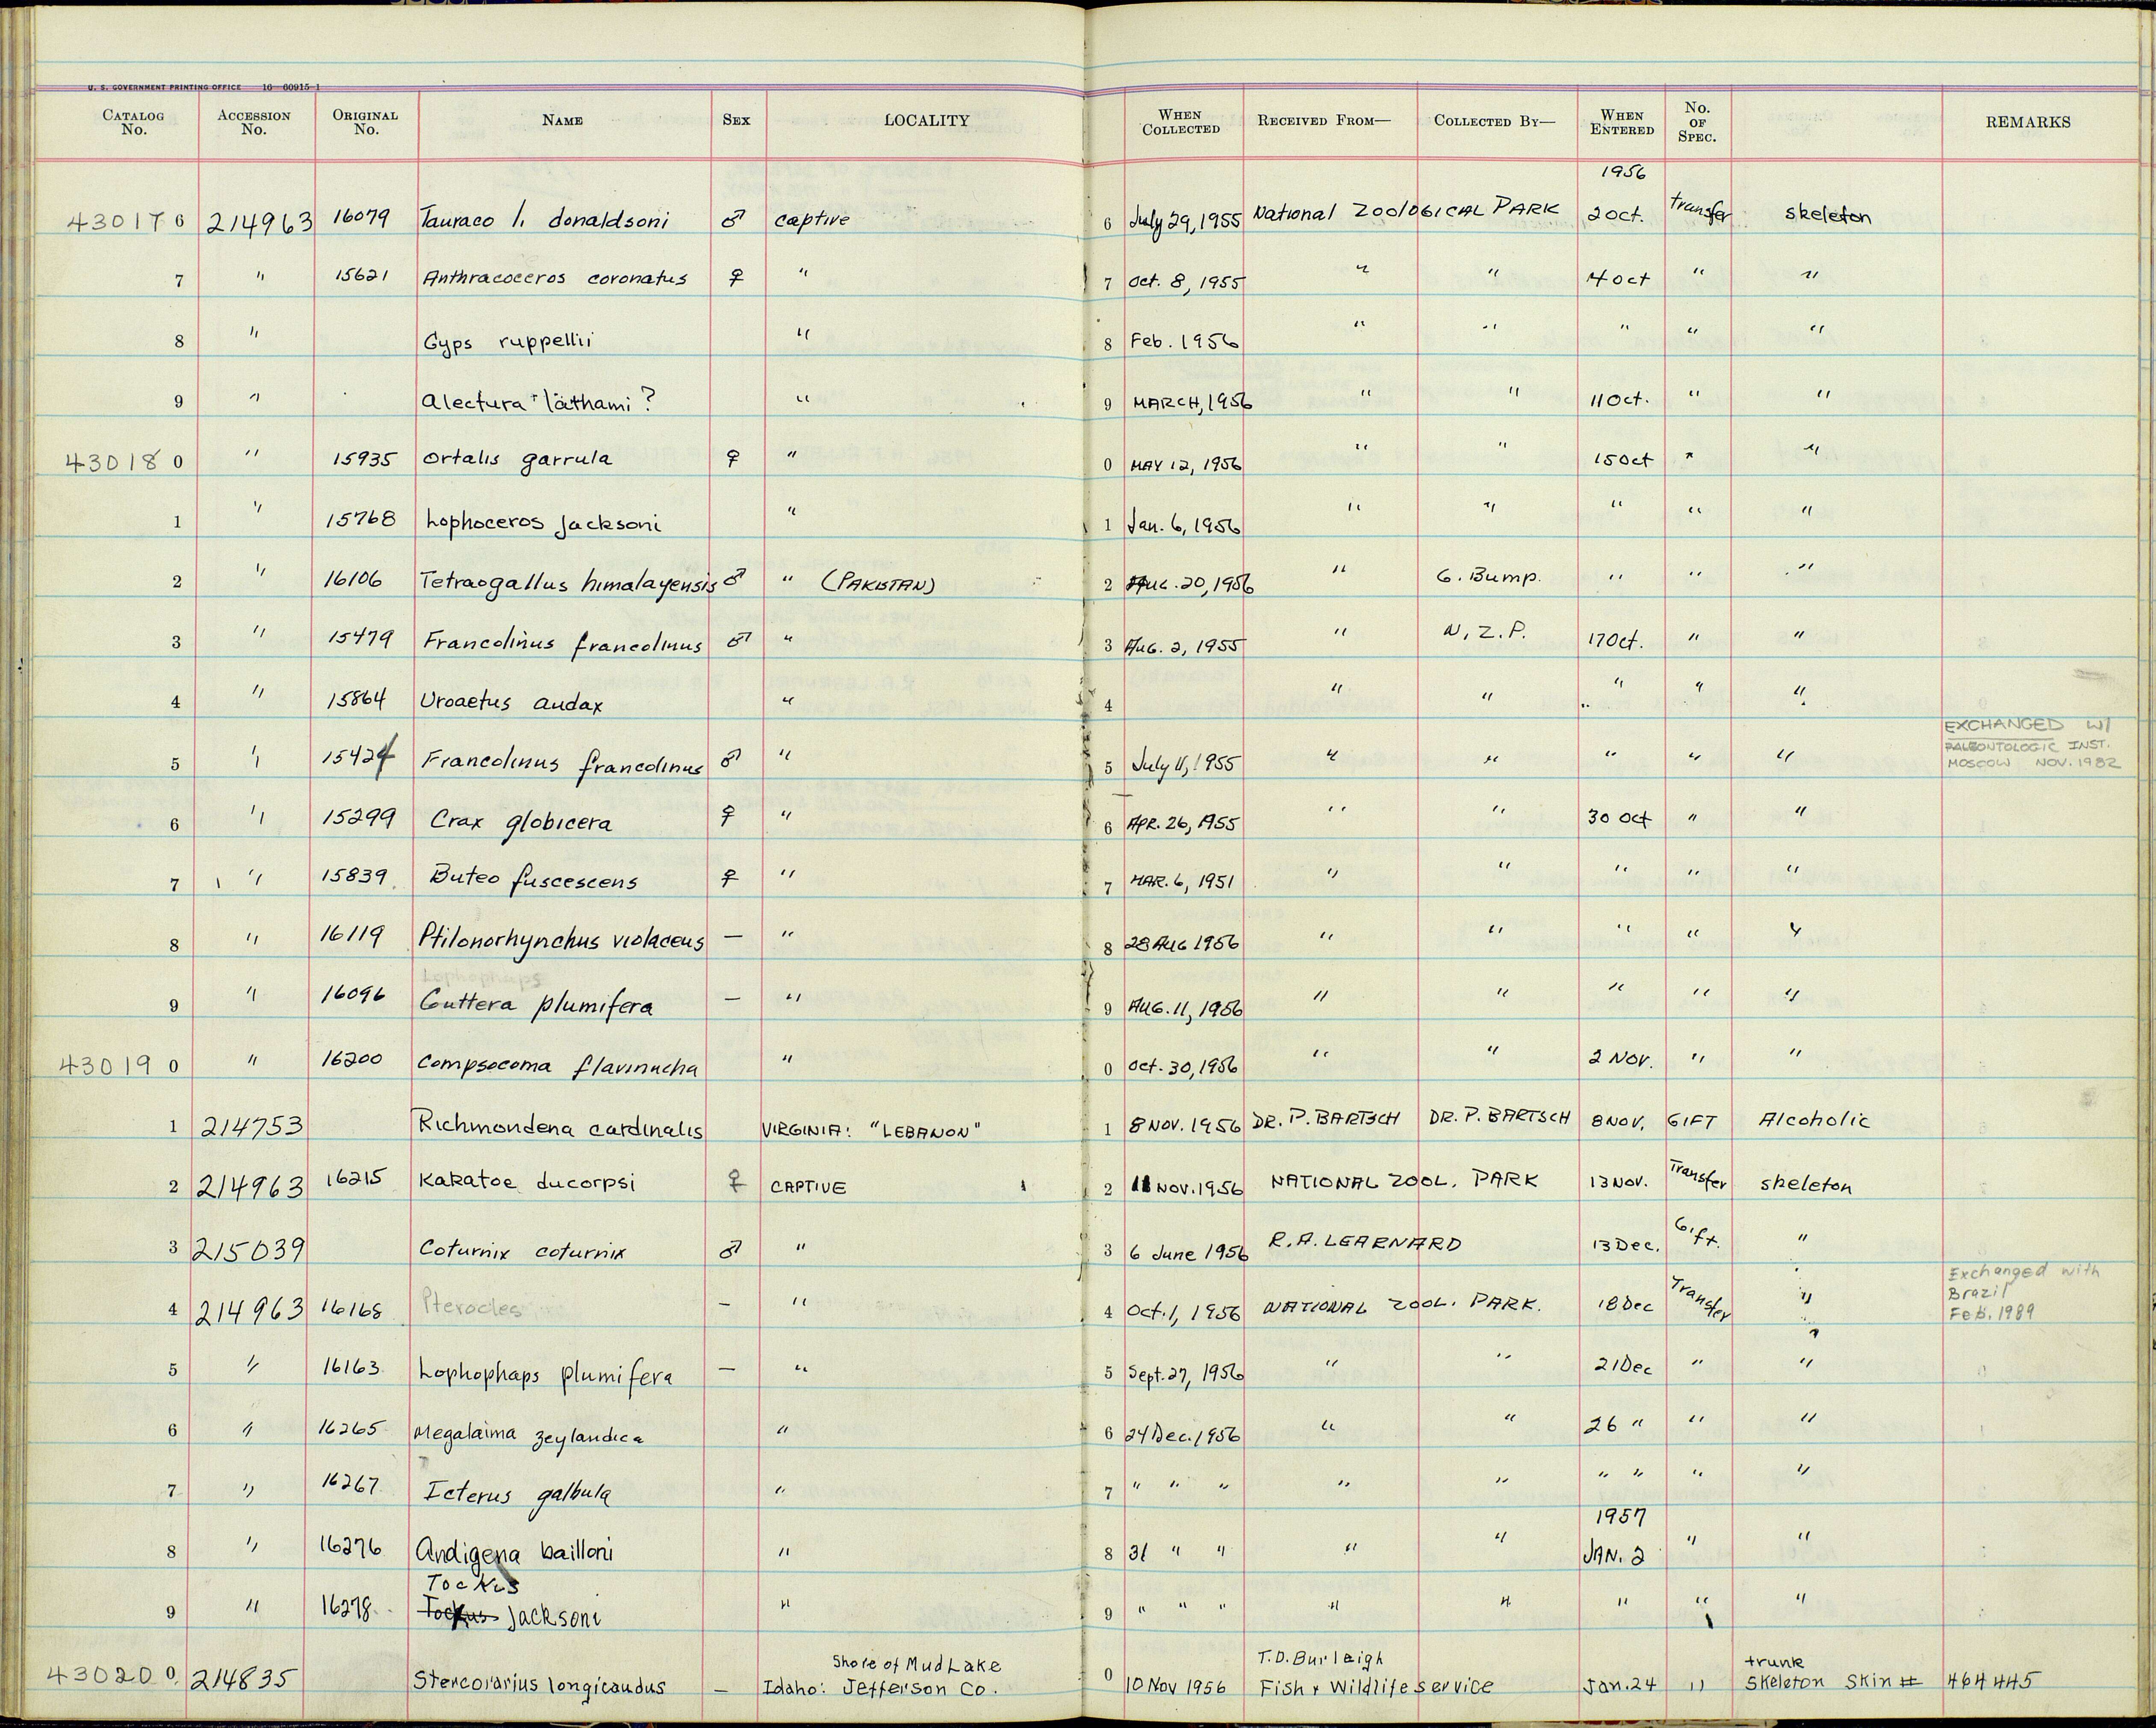 U. S. GOVERNMENT PRINTING OFFICE 16—60915-1
CATALOG No. ACCESSION No. ORIGINAL No. NAME SEX LOCALITY WHEN COLLECTED RECEIVED FROM— COLLECTED BY— WHEN ENTERED No. OF SPEC. REMARKS
1956
430176 214963 16079 Tauraco l. donaldsoni ♂ captive 6 July 29, 1955 National ZOOLOGICAL PARK 2 Oct. transfer skeleton
7 " 15621 Anthracoceros coronatus ♀ " 7 Oct. 8, 1955 " " 4 Oct " "
8 " Gyps ruppellii " 8 Feb. 1956 " " " " "
9 " Alectura lathami ? " 9 MARCH, 1956 " " 11 Oct. " "
430180 " 15935 Ortalis garrula ♀ " 0 MAY 12, 1956 " " 15 Oct " "
1 " 15768 Lophoceros jacksoni " 1 Jan. 6, 1956 " " " " "
2 " 16106 Tetraogallus himalayensis ♂ " (PAKISTAN) 2 AUG. 20, 1956 " G. Bump. " " "
3 " 15479 Francolinus francolinus ♂ " 3 AUG. 2, 1955 " N. Z. P. 17 Oct. " "
4 " 15864 Uroaetus audax " 4 " " " " "
5 " 15424 Francolinus francolinus ♂ " 5 July 11, 1955 " " " " " EXCHANGED W/
PALEONTOLOGIC INST.
MOSCOW NOV. 1982
6 " 15299 Crax globicera ♀ " 6 APR. 26, 1955 " " 30 Oct " "
7 " 15839 Buteo fuscescens ♀ " 7 MAR. 6, 1951 " " " " "
8 " 16119 Ptilonorhynchus violaceus — " 8 28 AUG 1956 " " " " "
Lophophaps
9 " 16096 Guttera plumifera — " 9 AUG. 11, 1956 " " " " "
430190 " 16200 Compsocoma flavinucha " 0 Oct. 30, 1956 " " 2 NOV. " "
1 214753 Richmondena cardinalis VIRGINIA: "LEBANON" 1 8 NOV. 1956 DR. P. BARTSCH DR. P. BARTSCH 8 NOV. GIFT Alcoholic
2 214963 16215 Kakatoe ducorpsi ♀ CAPTIVE 2 11 NOV. 1956 NATIONAL ZOOL. PARK 13 NOV. Transfer skeleton
3 215039 Coturnix coturnix ♂ " 3 6 June 1956 R. A. LEARNARD 13 Dec. Gift. "
4 214963 16168 Pterocles — " 4 Oct. 1, 1956 NATIONAL ZOOL. PARK. 18 Dec Transfer " Exchanged with
Brazil
Feb. 1989
5 " 16163 Lophophaps plumifera — " 5 Sept. 27, 1956 " " 21 Dec " "
6 " 16265 Megalaima zeylandica " 6 24 Dec. 1956 " " 26 " " "
7 " 16267 Icterus galbula " 7 " " " " " " " " "
1957
8 " 16276 Andigena bailloni " 8 31 " " " " JAN. 2 " "
Tockus
9 " 16278 Tockus jacksoni " 9 " " " " " " " "
Shore of Mud Lake T. D. Burleigh trunk
430200 214835 Stercorarius longicaudus — Idaho: Jefferson Co. 0 10 Nov 1956 Fish & Wildlife service Jan. 24 " Skeleton Skin # 464445